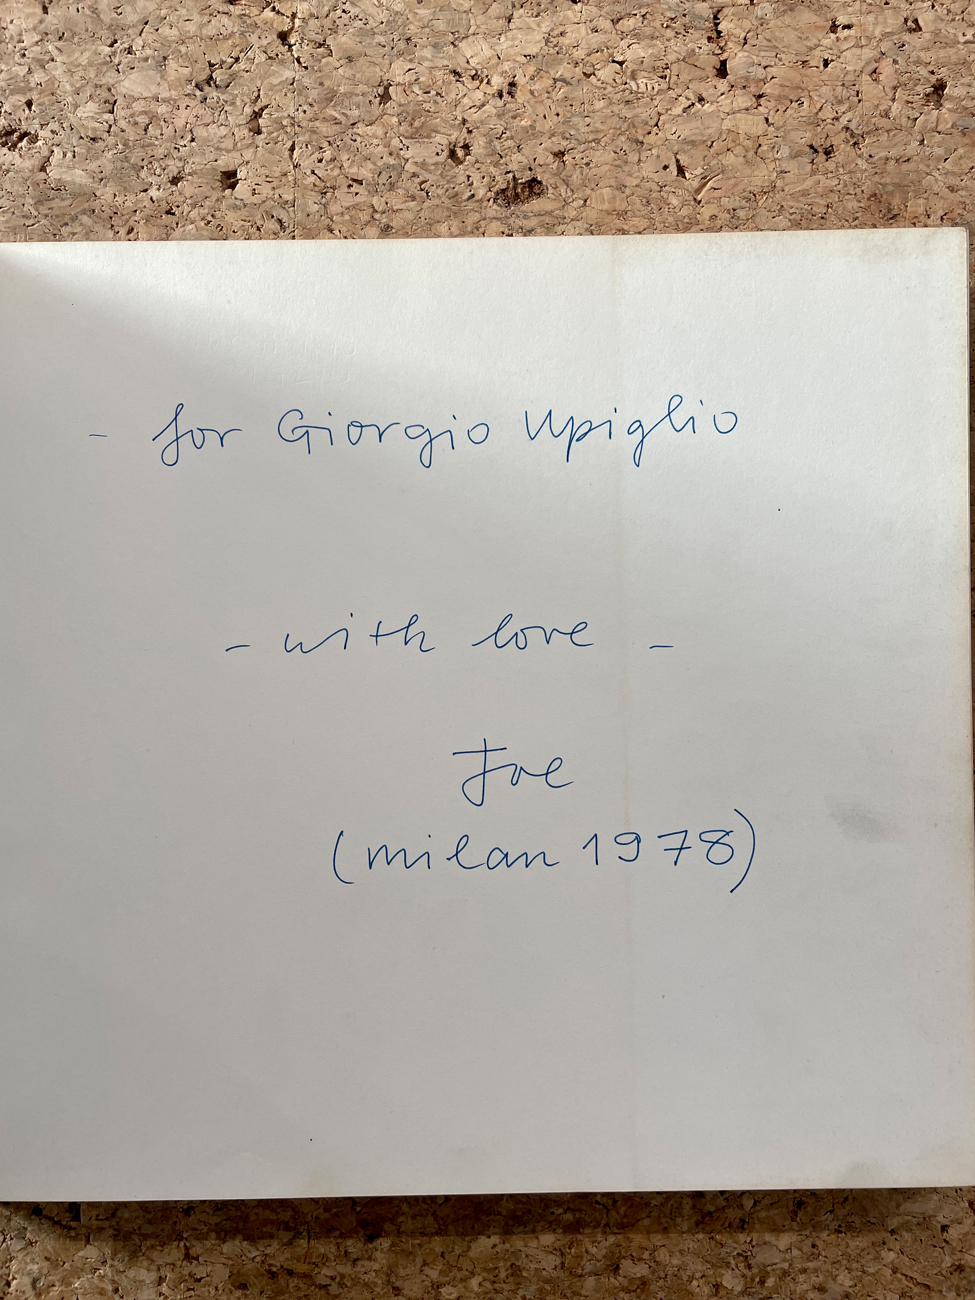 - for Giorgio Upiglio
- with love -
Joe
(milan 1978)